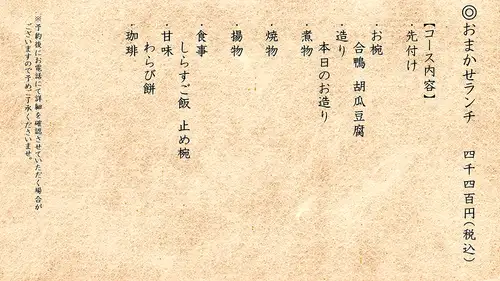 ◎おまかせランチ 四千四百円(税込)
【コース内容】
・先付け
・お椀
合鴨 胡瓜豆腐
・造り
本日のお造り
・煮物
・焼物
・揚物
・食事
しらすご飯 止め椀
・甘味
わらび餅
・珈琲
※予約後にお電話にて詳細を確認させていただく場合が
ございますので予めご了承くださいませ。